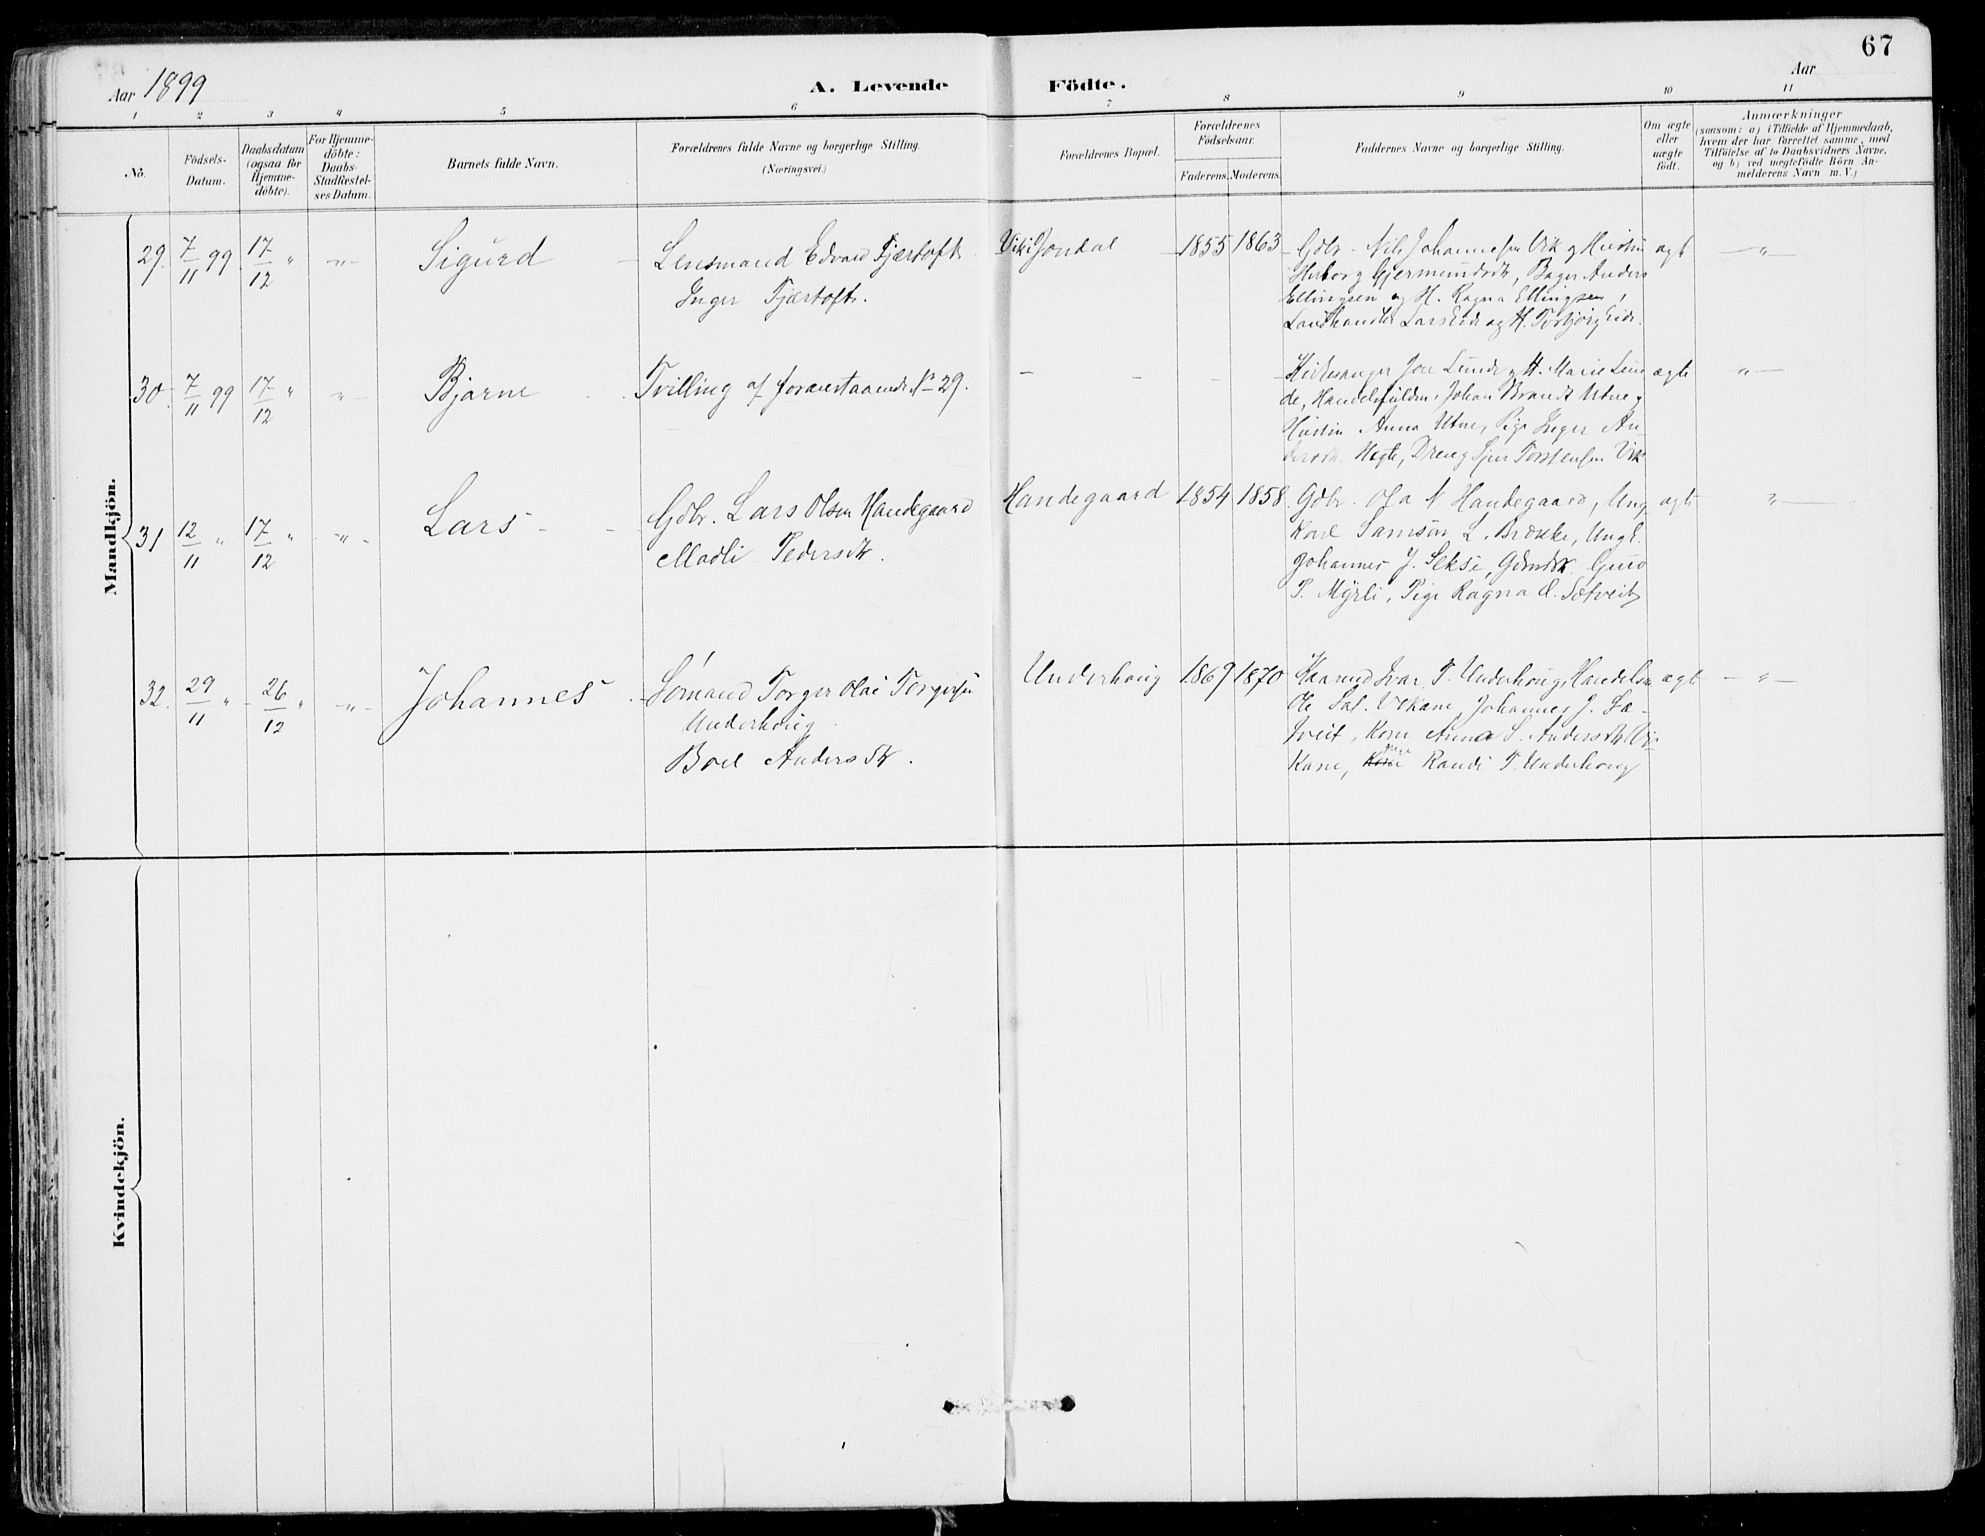 67
Aar 1899
A. Levende Födte.
Aar
1 2 3 4 5 6 7 8 9 10 11
No.
Födsels-
Datum.
Daabsdatum
(ogsaa for
Hjemme-
döbte).
For Hjemme-
döbte:
Daabs-
Stadfæstel-
ses Datum.
Barnets fulde Navn.
Forældrenes fulde Navne og borgerlige Stilling.
(Næringsvei.)
Forældrenes Bopæl.
Forældrenes
Födselsaar.
Faderens. Moderens.
Faddernes Navne og borgerlige Stilling.
Om ægte
eller
uægte
födt.
Anmærkninger
(saasom: a) i Tilfælde af Hjemmedaab,
hvem der har forrettet samme, med
Tilföielse af to Daabsvidners Navne,
og b) ved uegtefödte Börn An-
melderens Navn m. V.)
Mandkjön.
29. 7/11 99. 17/12 " -"-
Sigurd
Lensmand Edvard Fjærtoft
Inger Fjærtoft.
Vik i Jondal
1855 1863
Gdbr. Nils Johannesen Vik og Hustru
Gjermundsdt., Bager Anders
Ellingsen og H. Ragna Ellingsen,
Landhandler Lars Eide og H. Torbjörg Eide.
ægte
-"-
30. 7/11 99 17/12 " "-
Bjarne
Tvilling af foranstaaende No 29.
- - - -
Kirkesanger Jon Lunde og H. Marie Lun-
de, Johan Brandt Utne og
Hustru Anna Utne, Pige Inger An-
dersdt. Hegte, Dreng Torstensen Vik
ægte
"-
31 12/11 " 17/12 " -"-
Lars
Gdbr. Lars Olsen Handegaard
Madli Pedersdt.
Handegaard
1854 1858
Gdbr. Ola N. Handegaard, Ung-
karl Samson L. Brække, Ungk.
Johannes J. Sekse, Guro
P. Myrli, Pige Ragna O. Sætveit
ægte
"-
32. 29/11 " 26/12 " -"-
Johannes
Sömand Torger Olai Torgersen
Underhoug
Boel Andersdt.
Underhoug
1869 1870
Kaarmd Ivar T. Underhoug, Handelsm
Ole Sal. Vikane, Johannes J. Sæ-
tveit, Kone Anna S. Andersdt. Vi-
kane, Kone Randi T. Underhoug
ægte
-"-
Kvindekjön.